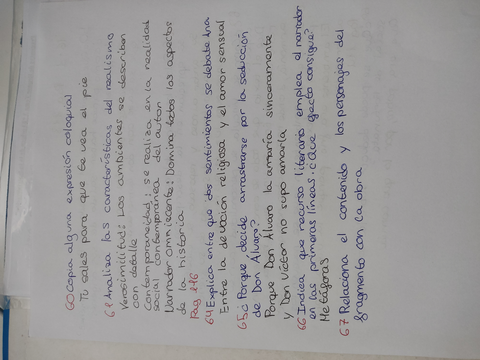 60 Copia alguna expresión coloquial
Tú sales para que te vea el pie
62 Analiza las características del realismo
Verosimilitud: Los ambientes se describen
con detalle
Contemporaneidad: se realiza en la realidad
social contemporánea del autor
Narrador omniscente: Domina todos los aspectos
de la historia
Pag 216
64 Explica entre que dos sentimientos se debate Ana
Entre la devoción religiosa y el amor sensual
65 ¿Porqué decide arrastrarse por la seducción
de Don Álvaro?
Porque Don Álvaro la amaría sinceramente
y Don Víctor no supo amarla
66 Indica que recurso literario emplea el narrador
en las primeras líneas. ¿Qué efecto consigue?
Metáforas
67 Relaciona el contenido y los personajes del
fragmento con la obra